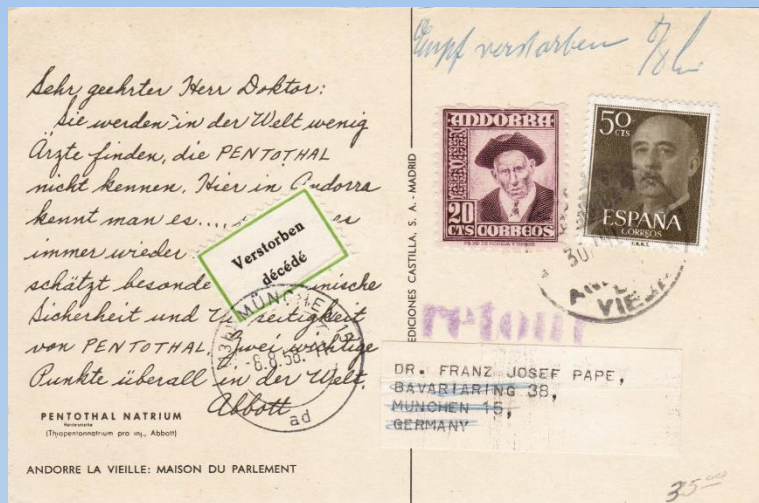 Empf verstorben
Sehr geehrter Herr Doktor:
Sie werden in der Welt wenig
Ärzte finden, die PENTOTHAL
nicht kennen. Hier in Andorra
kennt man es.... es
immer wieder
schätzt besonde inische
Sicherheit und Vielseitigkeit
von PENTOTHAL. Zwei wichtige
Punkte überall in der Welt.
Abbott
Verstorben
décédé
MÜNCHEN
-6.8.58.
ad
PENTOTHAL NATRIUM
(Thiopentonnatrium pro inj., Abbott)
ANDORRE LA VIEILLE: MAISON DU PARLEMENT
EDICIONES CASTILLA, S. A. - MADRID
ANDORRA
20
CTS CORREOS
50
CTS
ESPAÑA
CORREOS
VIEJA
DR. FRANZ JOSEF PAPE,
BAVARIARING 38,
MUNCHEN 15,
GERMANY
35.00